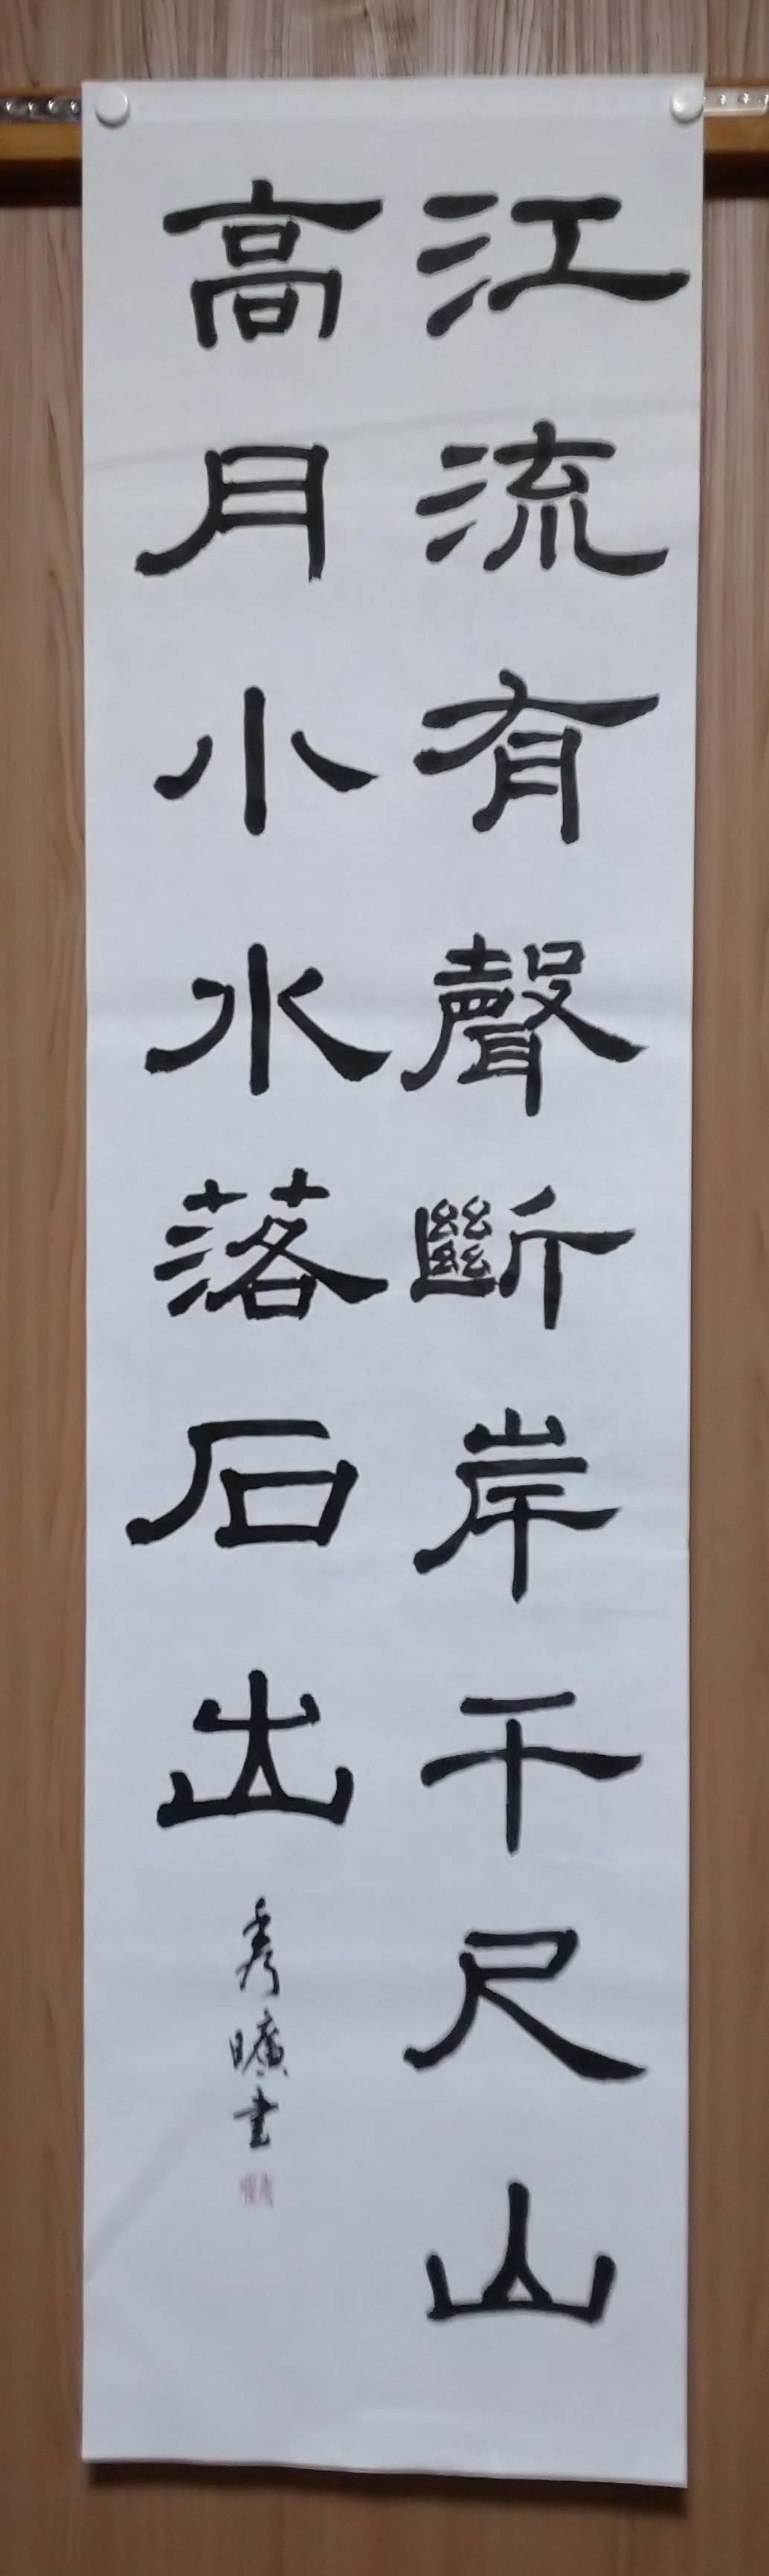 江流有聲斷岸千尺山
高月小水落石出
秀曠書